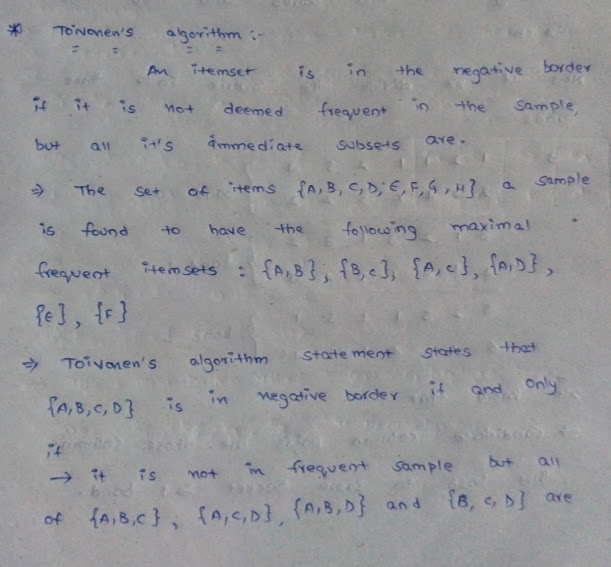 * Toivonen's algorithm :-
An itemset is in the negative border
if it is not deemed frequent in the sample,
but all it's immediate subsets are.
⇒ The set of items {A, B, C, D, E, F, G, H} a sample
is found to have the following maximal
frequent itemsets : {A, B}, {B, C}, {A, C}, {A, D},
{E}, {F}
⇒ Toivonen's algorithm statement states that
{A, B, C, D} is in negative border if and only
if
→ it is not in frequent sample but all
of {A, B, C}, {A, C, D}, {A, B, D} and {B, C, D} are